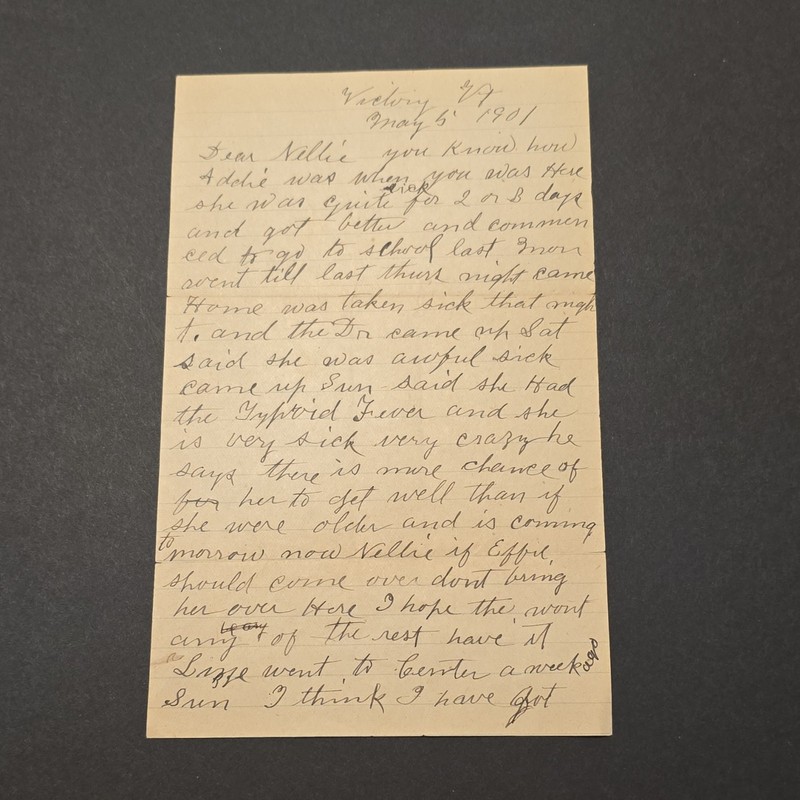 Victory Vt
May 5 1901
Dear Nellie you know how
Addie was when you was Here
she was quite sick for 2 or 3 days
and got better and commen
ced to go to school last mon
went till last thurs night came
Home was taken sick that nigh
t. and the Dr came up Sat
said she was awful sick
came up Sun said she Had
the Typhoid Fever and she
is very sick very crazy he
says there is more chance of
for her to get well than if
she were older and is coming
to morrow now Nellie if Effie
should come over dont bring
her over Here I hope the wont
be any
any of the rest have it
went to Center a week ago
Sun I think I have got